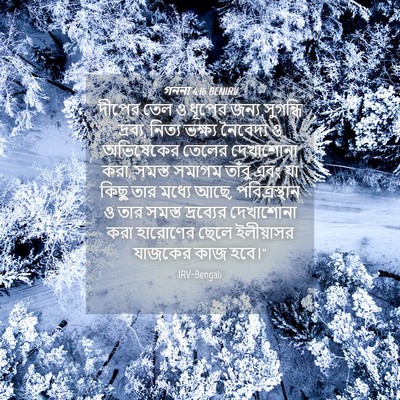 গননা 4:16 BENIRV
দীপের তেল ও ধূপের জন্য সুগন্ধি
দ্রব্য, নিত্য ভক্ষ্য নৈবেদ্য ও
অভিষেকের তেলের দেখাশোনা
করা, সমস্ত সমাগম তাঁবু এবং যা
কিছু তার মধ্যে আছে, পবিত্রস্থান
ও তার সমস্ত দ্রব্যের দেখাশোনা
করা হারোণের ছেলে ইলীয়াসর
যাজকের কাজ হবে।”
IRV-Bengali